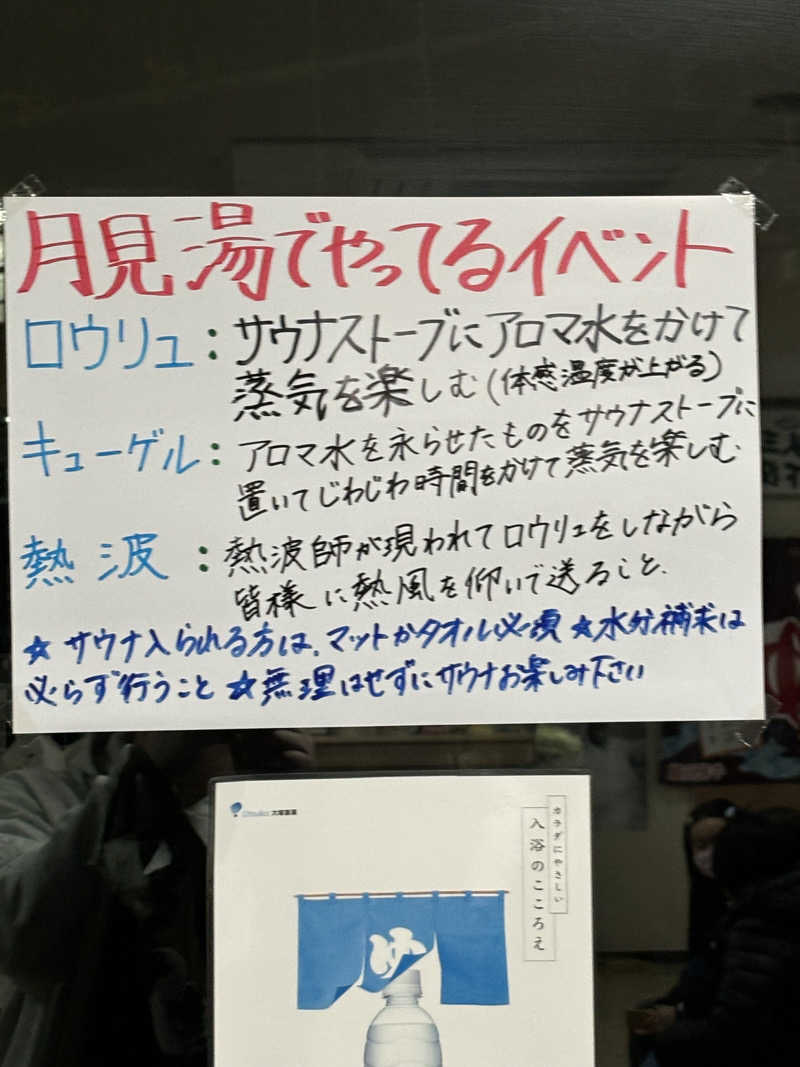 月見湯でやってるイベント
ロウリュ：サウナストーブにアロマ水をかけて
蒸気を楽しむ(体感温度が上がる)
キューゲル：アロマ水を氷らせたものをサウナストーブに
置いてじわじわ時間をかけて蒸気を楽しむ
熱波：熱波師が現われてロウリュをしながら
皆様に熱風を仰いで送ること.
☆サウナ入られる方は、マットかタオル必須☆水分補求は
必らず行うこと☆無理はせずにサウナお楽しみ下さい
Otsuka 大塚製薬
カラダにやさしい
入浴のこころえ
ゆ